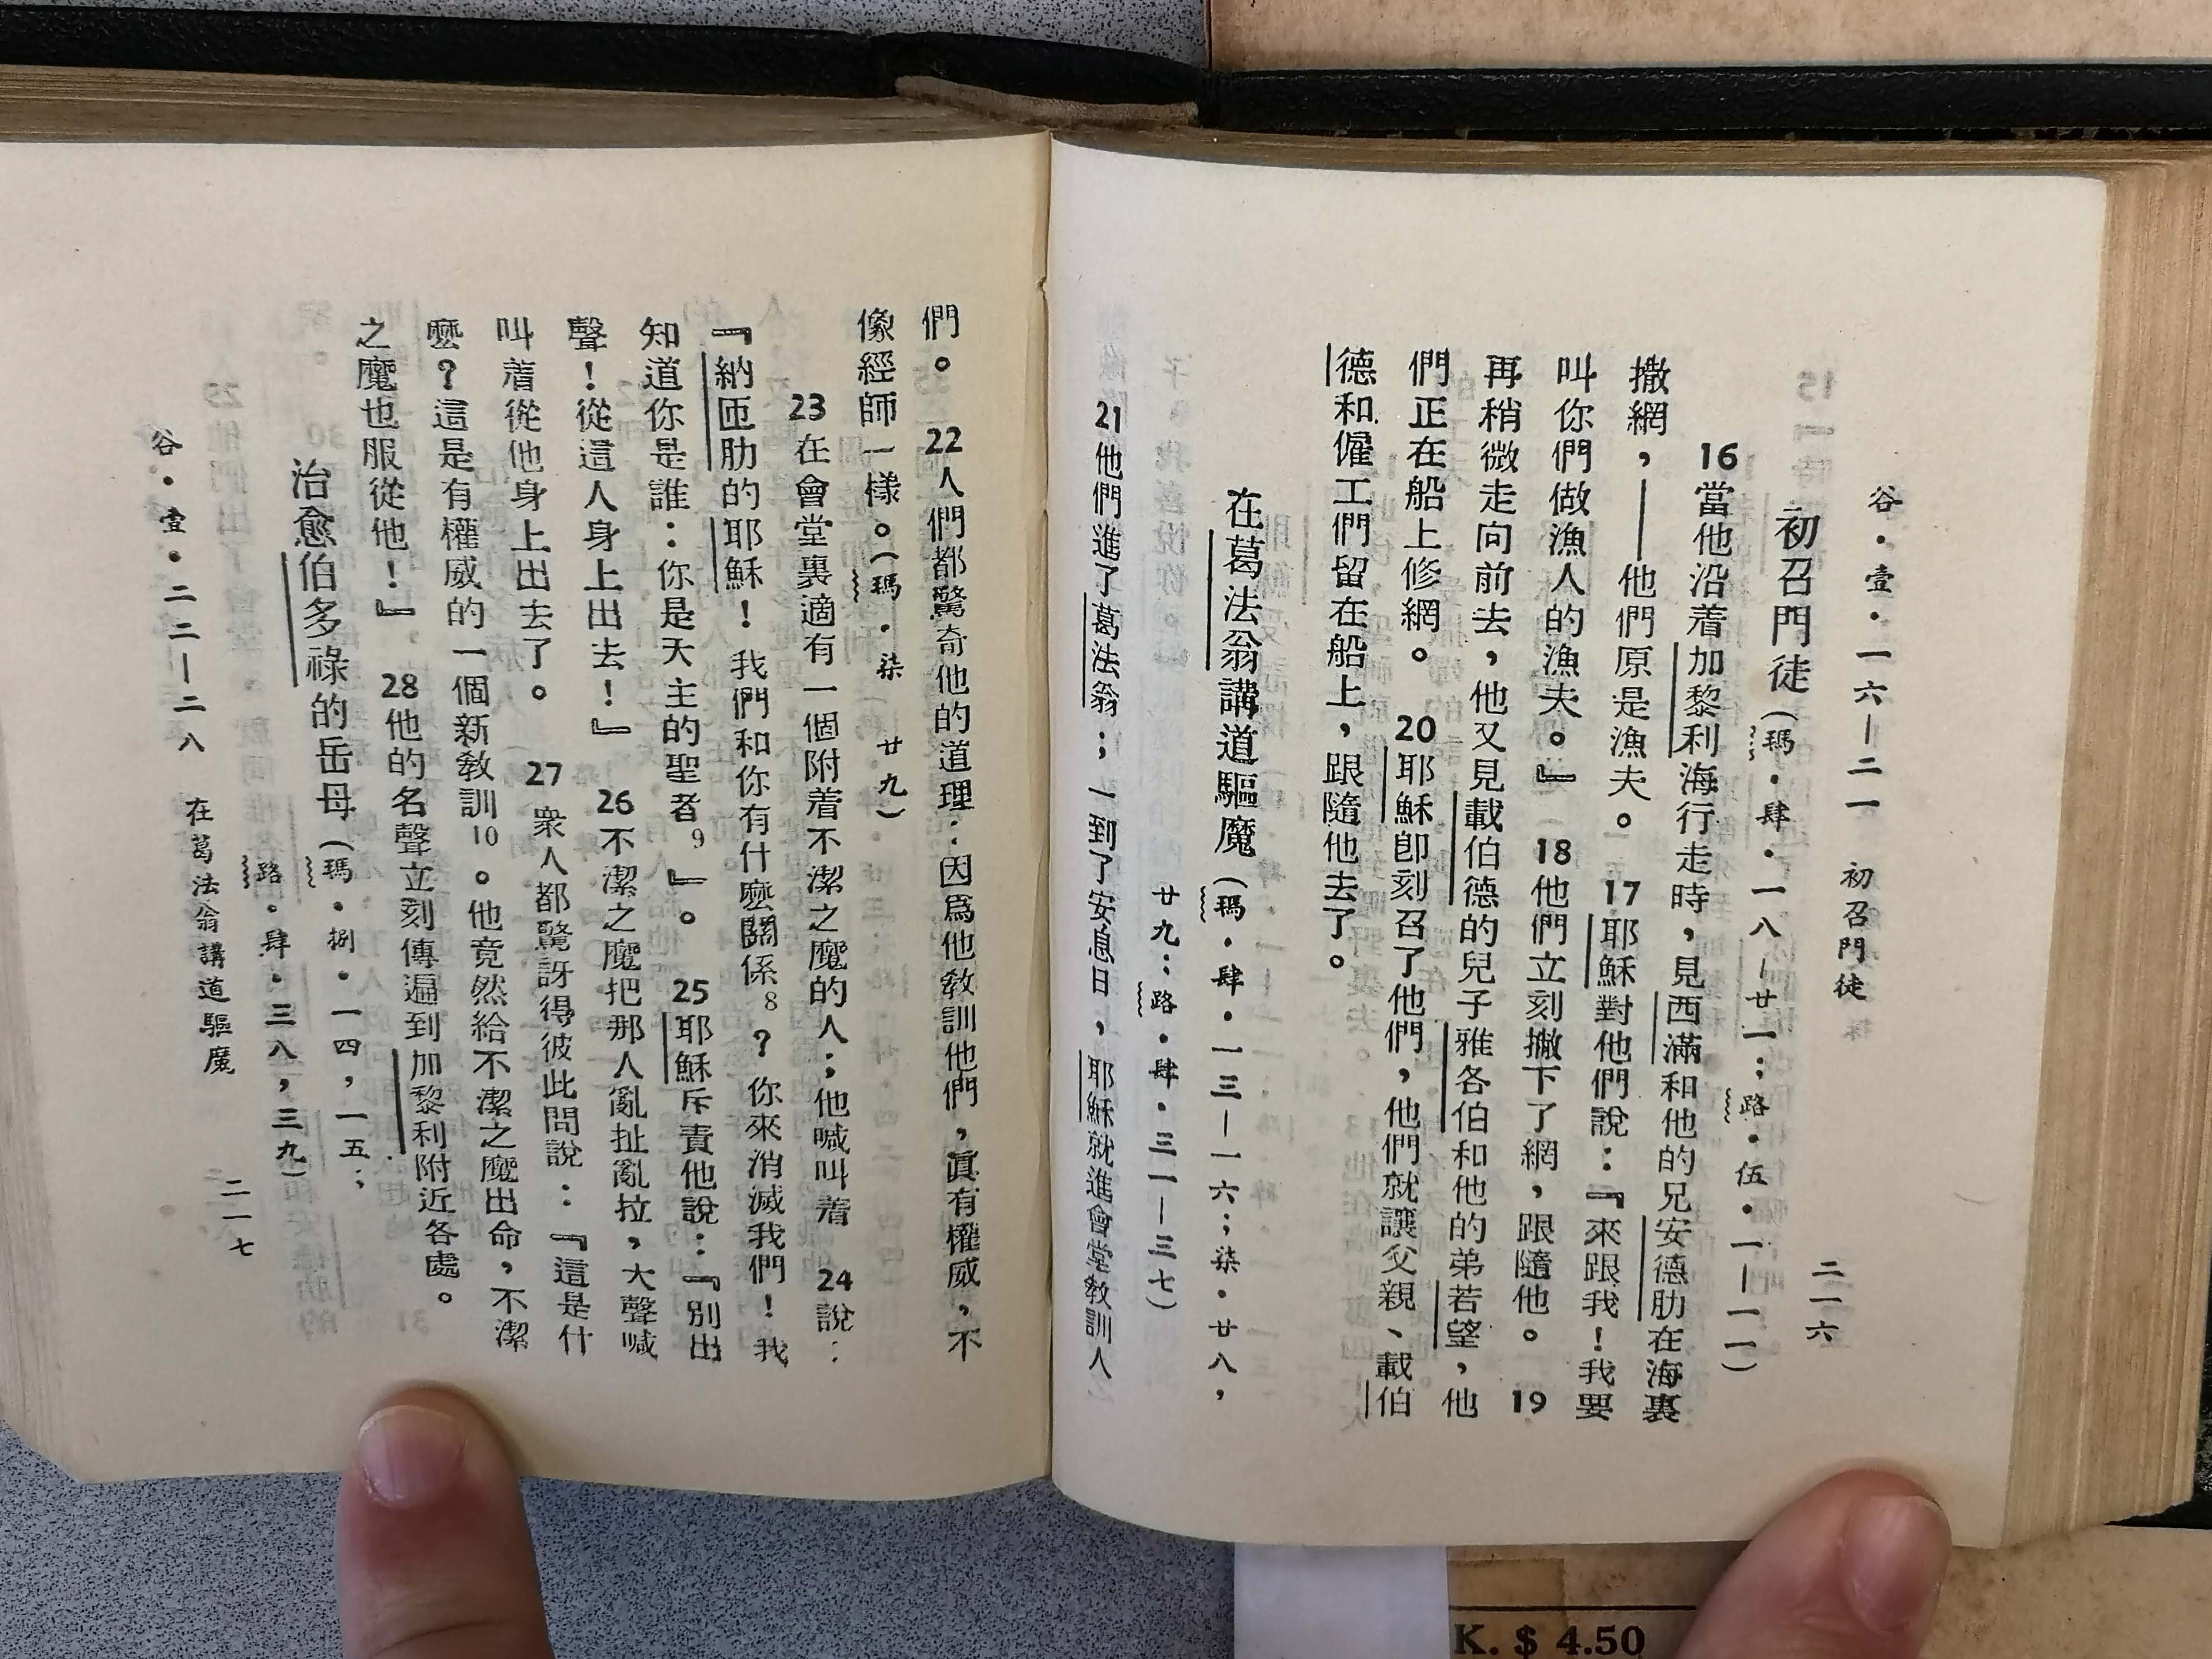 谷·壹·一六—二一 初召門徒 二一六
初召門徒(瑪·肆·一八—廿一;路·伍·一—一一)
16當他沿着加黎利海行走時,見西滿和他的兄安德肋在海裏
撒網,——他們原是漁夫。17耶穌對他們說:『來跟我!我要
叫你們做漁人的漁夫。』18他們立刻撇下了網,跟隨他。19
再稍微走向前去,他又見載伯德的兒子雅各伯和他的弟若望,他
們正在船上修網。20耶穌卽刻召了他們,他們就讓父親、載伯
德和僱工們留在船上,跟隨他去了。
在葛法翁講道驅魔(瑪·肆·一三—一六;柒·廿八,
廿九;路·肆·三一—三七)
21他們進了葛法翁;一到了安息日,耶穌就進會堂敎訓人
們。22人們都驚奇他的道理:因爲他敎訓他們,眞有權威,不
像經師一樣。(瑪·柒·廿九)
23在會堂裏適有一個附着不潔之魔的人;他喊叫着24說:
『納匝肋的耶穌!我們和你有什麼關係8?你來消滅我們!我
知道你是誰:你是天主的聖者9』。25耶穌斥責他說:『別出
聲!從這人身上出去!』26不潔之魔把那人亂扯亂拉,大聲喊
叫着從他身上出去了。27衆人都驚訝得彼此問說:『這是什
麼?這是有權威的一個新敎訓10。他竟然給不潔之魔出命,不潔
之魔也服從他!』28他的名聲立刻傳遍到加黎利附近各處。
治愈伯多祿的岳母(瑪·捌·一四,一五;
路·肆·三八,三九)
谷·壹·二二—二八 在葛法翁講道驅魔 二一七
K. $ 4.50